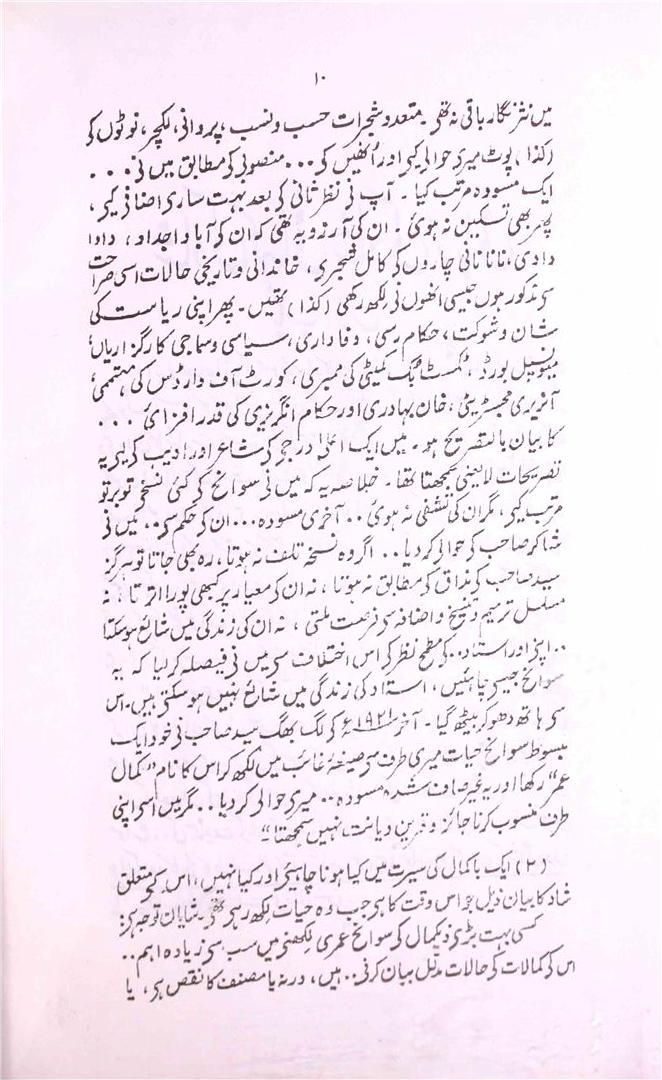 ۱۰
میں نثر نگار باقی نہ تھی۔ متعدد شجرات حسب و نسب، پروانی، لکچر، نوٹوں کی
(کذا) پوٹ میری حوالی کی اور اُنھیں کی ... منصوبی کی مطابق میں نی ...
ایک مسودہ مرتب کیا۔ آپ نی نظر ثانی کی بعد بہت ساری اضافی کی،
پھر بھی تسکین نہ ہوئی۔ ان کی آرزو یہ تھی کہ ان کی آبا و اجداد، دادا
دادی، نانا نانی چاروں کی کامل شجری، خاندانی و تاریخی حالات اسی صراحت
سی مذکور ہوں جیسی اُنھوں نی لکھ رکھی (کذا) تھیں۔ پھر اپنی ریاست کی
شان و شوکت، حکام رسی، وفاداری، سیاسی و سماجی کارگزاریاں
میونسپل بورڈ، ٹکسٹ بک کمیٹی کی ممبری، کورٹ آف وارڈس کی مہتممی
آنریری مجسٹریٹی، خان بہادری اور حکام انگریزی کی قدر افزائی ...
کا بیان بالتصریح ہو۔ میں ایک اعلیٰ درجی کی شاعر اور ادیب کی لیی یہ
تصریحات لایعنی سمجھتا تھا۔ خلاصہ یہ کہ میں نی سوانح کی کئی نسخی تو بر تو
مرتب کیی، مگر ان کی تشفی نہ ہوئی .. آخری مسودہ ... ان کی حکم سی .. میں نی
شاکر صاحب کی حوالی کر دیا .. اگر وہ نسخہ تلف نہ ہوتا، رہ بھی جاتا تو ہرگز
سید صاحب کی مذاق کی مطابق نہ ہوتا، نہ ان کی معیار پر کبھی پورا اترتا، نہ
مسلسل ترمیم و تنسیخ و اضافہ سی فرصت ملتی، نہ ان کی زندگی میں شائع ہو سکتا
.. اپنی اور استاد .. کی مطمح نظر کی اس اختلاف سی میں نی فیصلہ کر لیا کہ یہ
سوانح جیسی چاہئیں، استاد کی زندگی میں شائع نہیں ہو سکتی ہیں۔ اس
سی ہاتھ دھو کر بیٹھ گیا۔ آخر ۱۹۲۱ء کی لگ بھگ سید صاحب نی خود ایک
مبسوط سوانح حیات میری طرف سی صیغۂ غائب میں لکھ کر اس کا نام "کمال
عمر" رکھا اور یہ غیر صاف شدہ مسودہ .. میری حوالی کر دیا .. مگر میں اسی اپنی
طرف منسوب کرنا جائز و قرین دیانت نہیں سمجھتا"۔
(۲) ایک باکمال کی سیرت میں کیا ہونا چاہیی اور کیا نہیں، اس کی متعلق
شاد کا بیان ذیل جو اس وقت کا ہی جب وہ حیات لکھ رہی تھی۔ شایان توجہ ہی:
کسی بہت بڑی ذی کمال کی سوانح عمری لکھنی میں سب سی زیادہ اہم ..
اس کی کمالات کی حالات مدلل بیان کرنی .. ہیں، ورنہ یا مصنف کا نقص ہی، یا